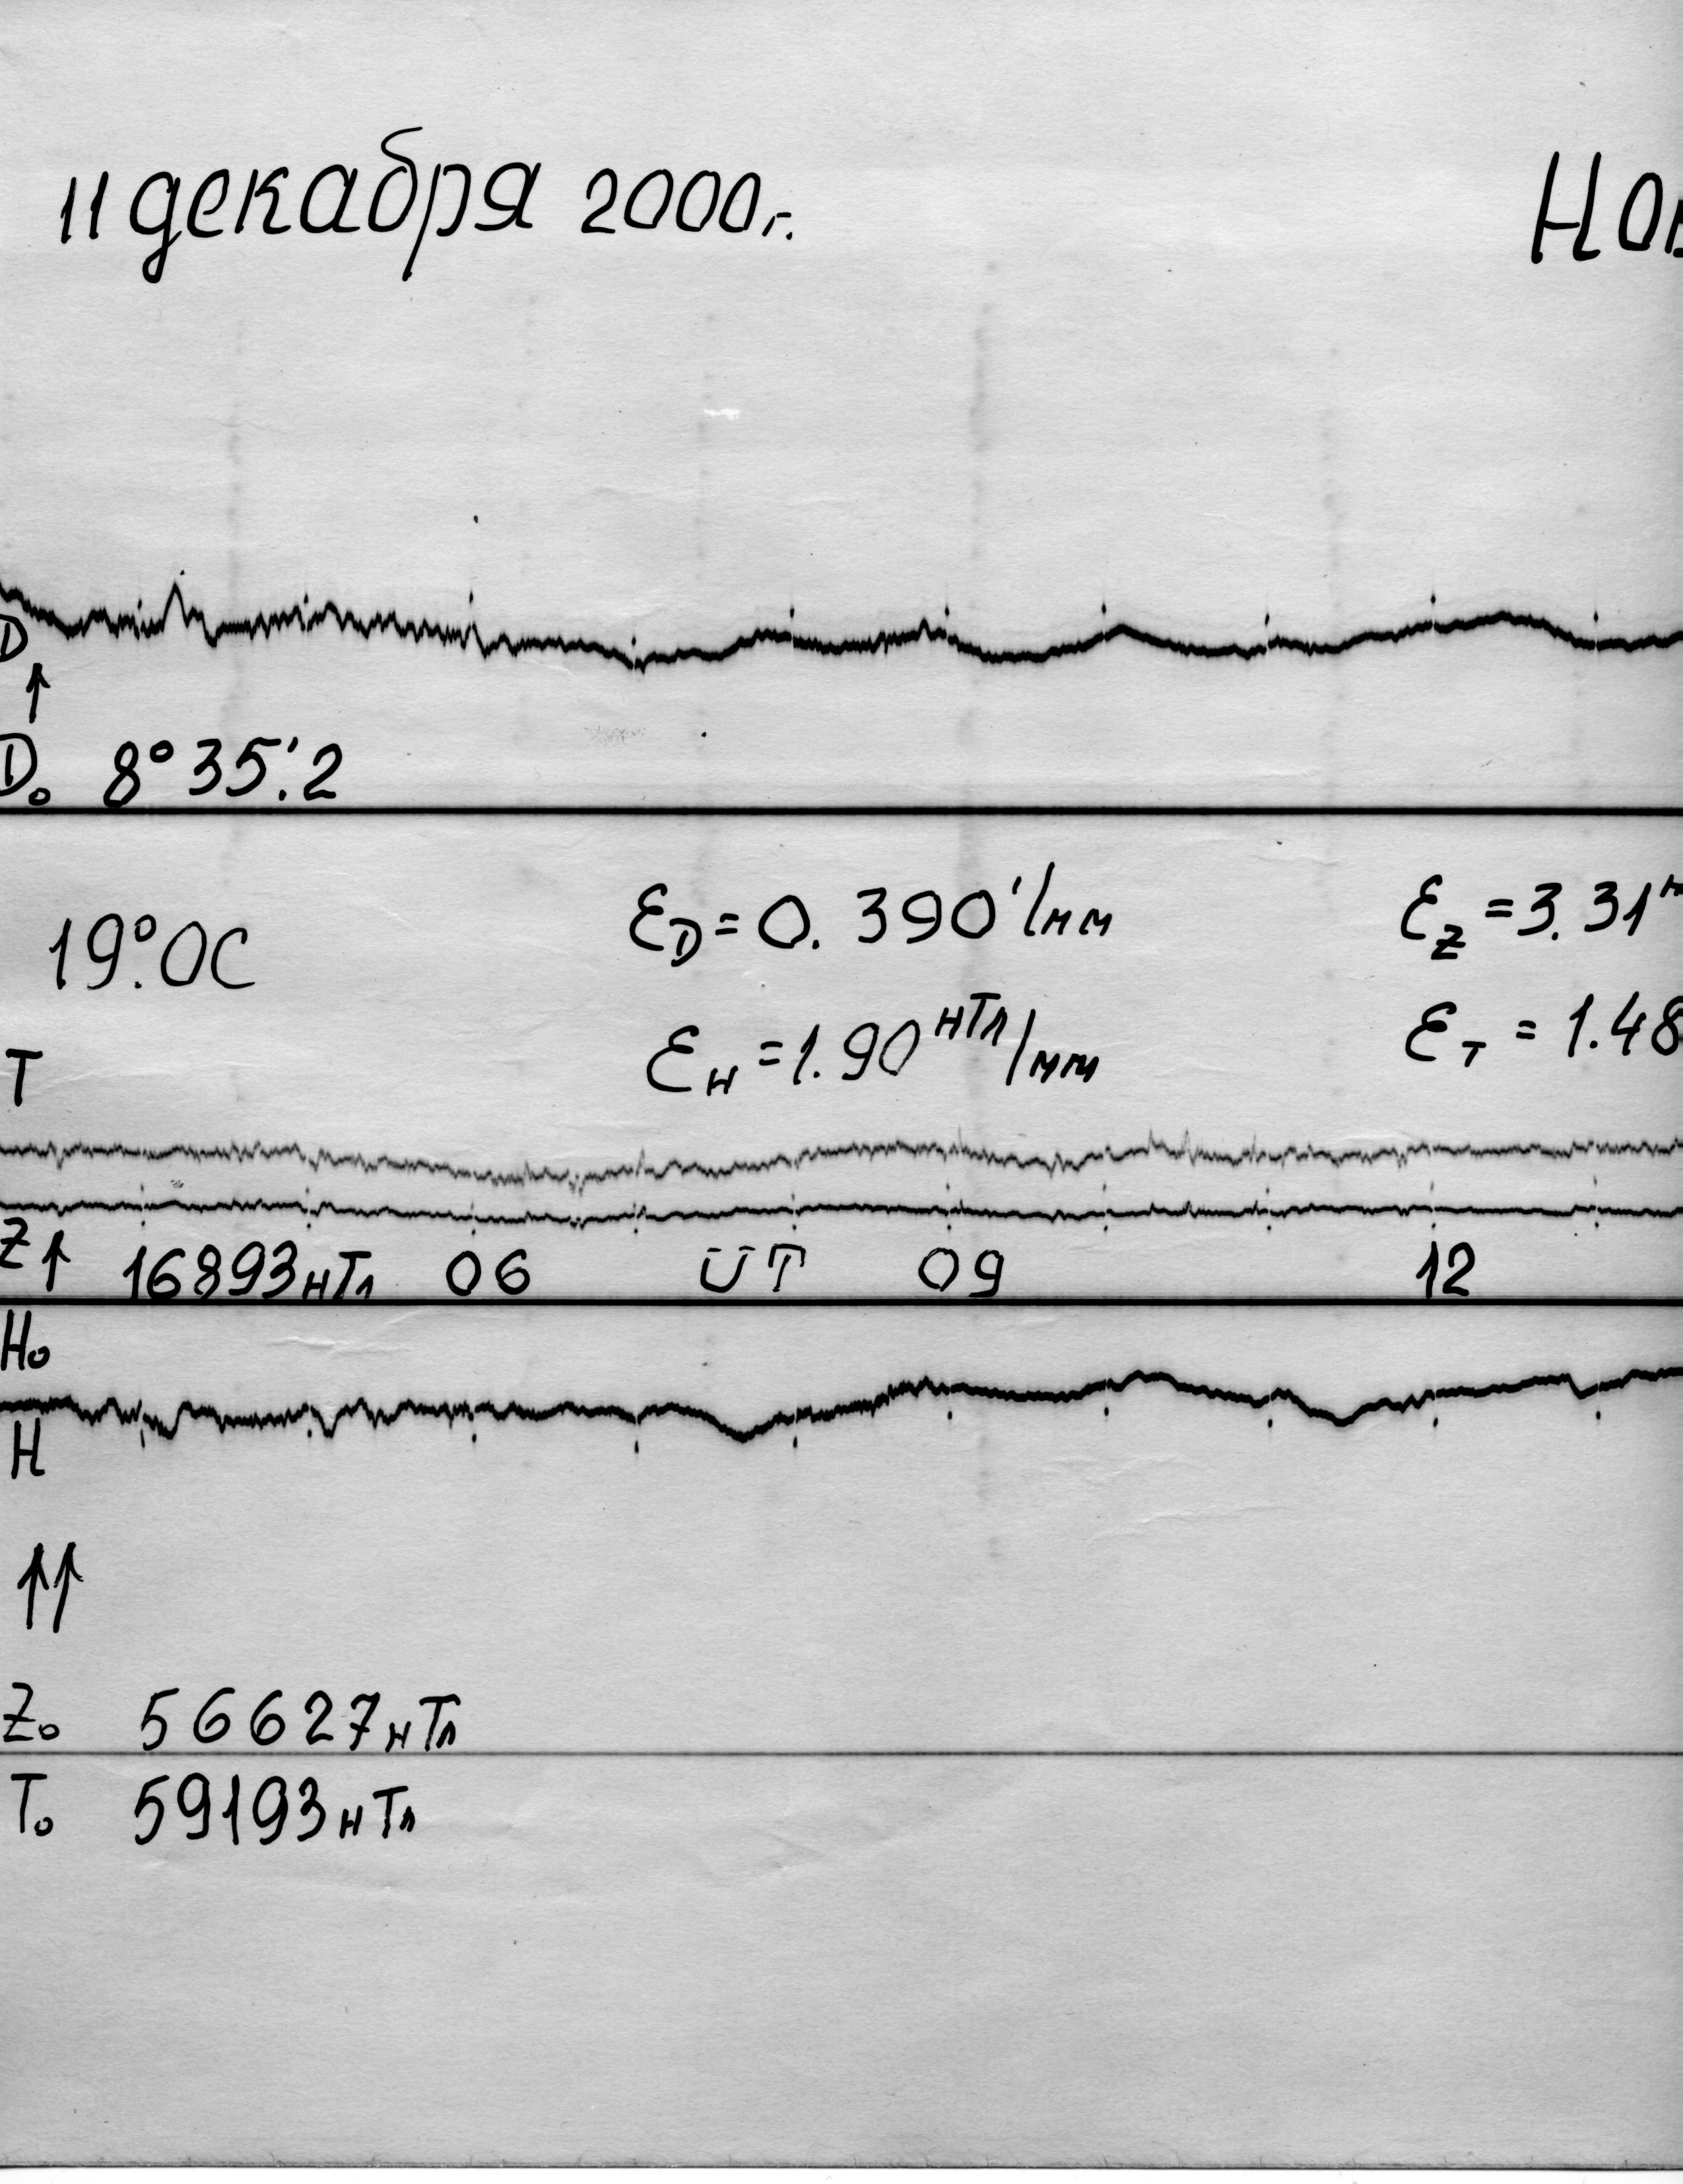 11 декабря 2000г.
Нов
D
D₀ 8°35.′2
19.°0С
ε_D = 0.390′/мм
ε_Z = 3.31н
ε_H = 1.90нТл/мм
ε_T = 1.48
T
Z 16893нТл 06 UT 09 12
H₀
H
Z₀ 56627нТл
T₀ 59193нТл